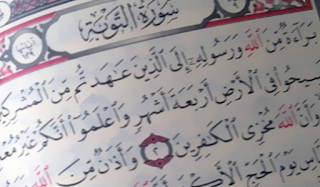 سُورَةُ التَّوْبَةِ
بَرَاءَةٌ مِّنَ اللَّهِ وَرَسُولِهِ إِلَى الَّذِينَ عَاهَدتُّم مِّنَ الْمُشْرِكِ
سِيحُوا فِي الْأَرْضِ أَرْبَعَةَ أَشْهُرٍ وَاعْلَمُوا أَنَّكُمْ غَيْرُ مُعْ
وَأَنَّ اللَّهَ مُخْزِي الْكَافِرِينَ ٢ وَأَذَانٌ مِّنَ
يَوْمَ الْحَجِّ الْأَكْ